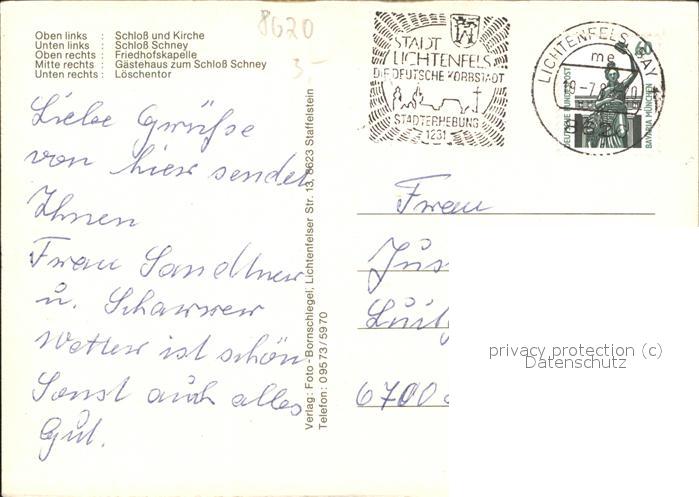 8620
3.-
Oben links : Schloß und Kirche
Unten links : Schloß Schney
Oben rechts : Friedhofskapelle
Mitte rechts : Gästehaus zum Schloß Schney
Unten rechts : Löschentor
Liebe Grüße
von hier sendet
Ihnen
Frau Sandtner
u. Scharrer
Wetter ist schön
Sonst auch alles
Gut.
Verlag: Foto-Bornschlegel, Lichtenfelser Str. 13, 8623 Staffelstein
Telefon: 09573/5970
STADT
LICHTENFELS
DIE DEUTSCHE KORBSTADT
STADTERHEBUNG
1231
LICHTENFELS, BAY
me
60
DEUTSCHE BUNDESPOST
BAVARIA MÜNCHEN
Frau
Jus
Luit
6700
privacy protection (c)
Datenschutz